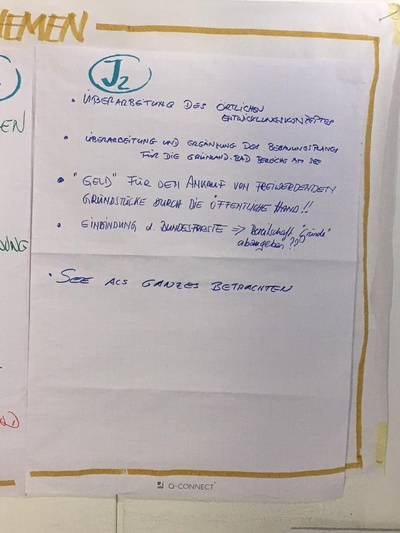 HEMEN
J2
• ÜBERARBEITUNG DES ÖRTLICHEN
ENTWICKLUNGSKONZEPTES
• ÜBERARBEITUNG UND ERGÄNZUNG DER BEBAUUNGSPLÄNE
FÜR DIE GRÜNLAND-BAD BEREICHE AM SEE
• "GELD" FÜR DEN ANKAUF VON FREIWERDENDEN
GRUNDSTÜCKE DURCH DIE ÖFFENTLICHE HAND!!
• EINBINDUNG d. BUNDESFORSTE => Bereitschaft "Gründe"
abzugeben??
• SEE ALS GANZES BETRACHTEN
EN
DUNG
Q-CONNECT